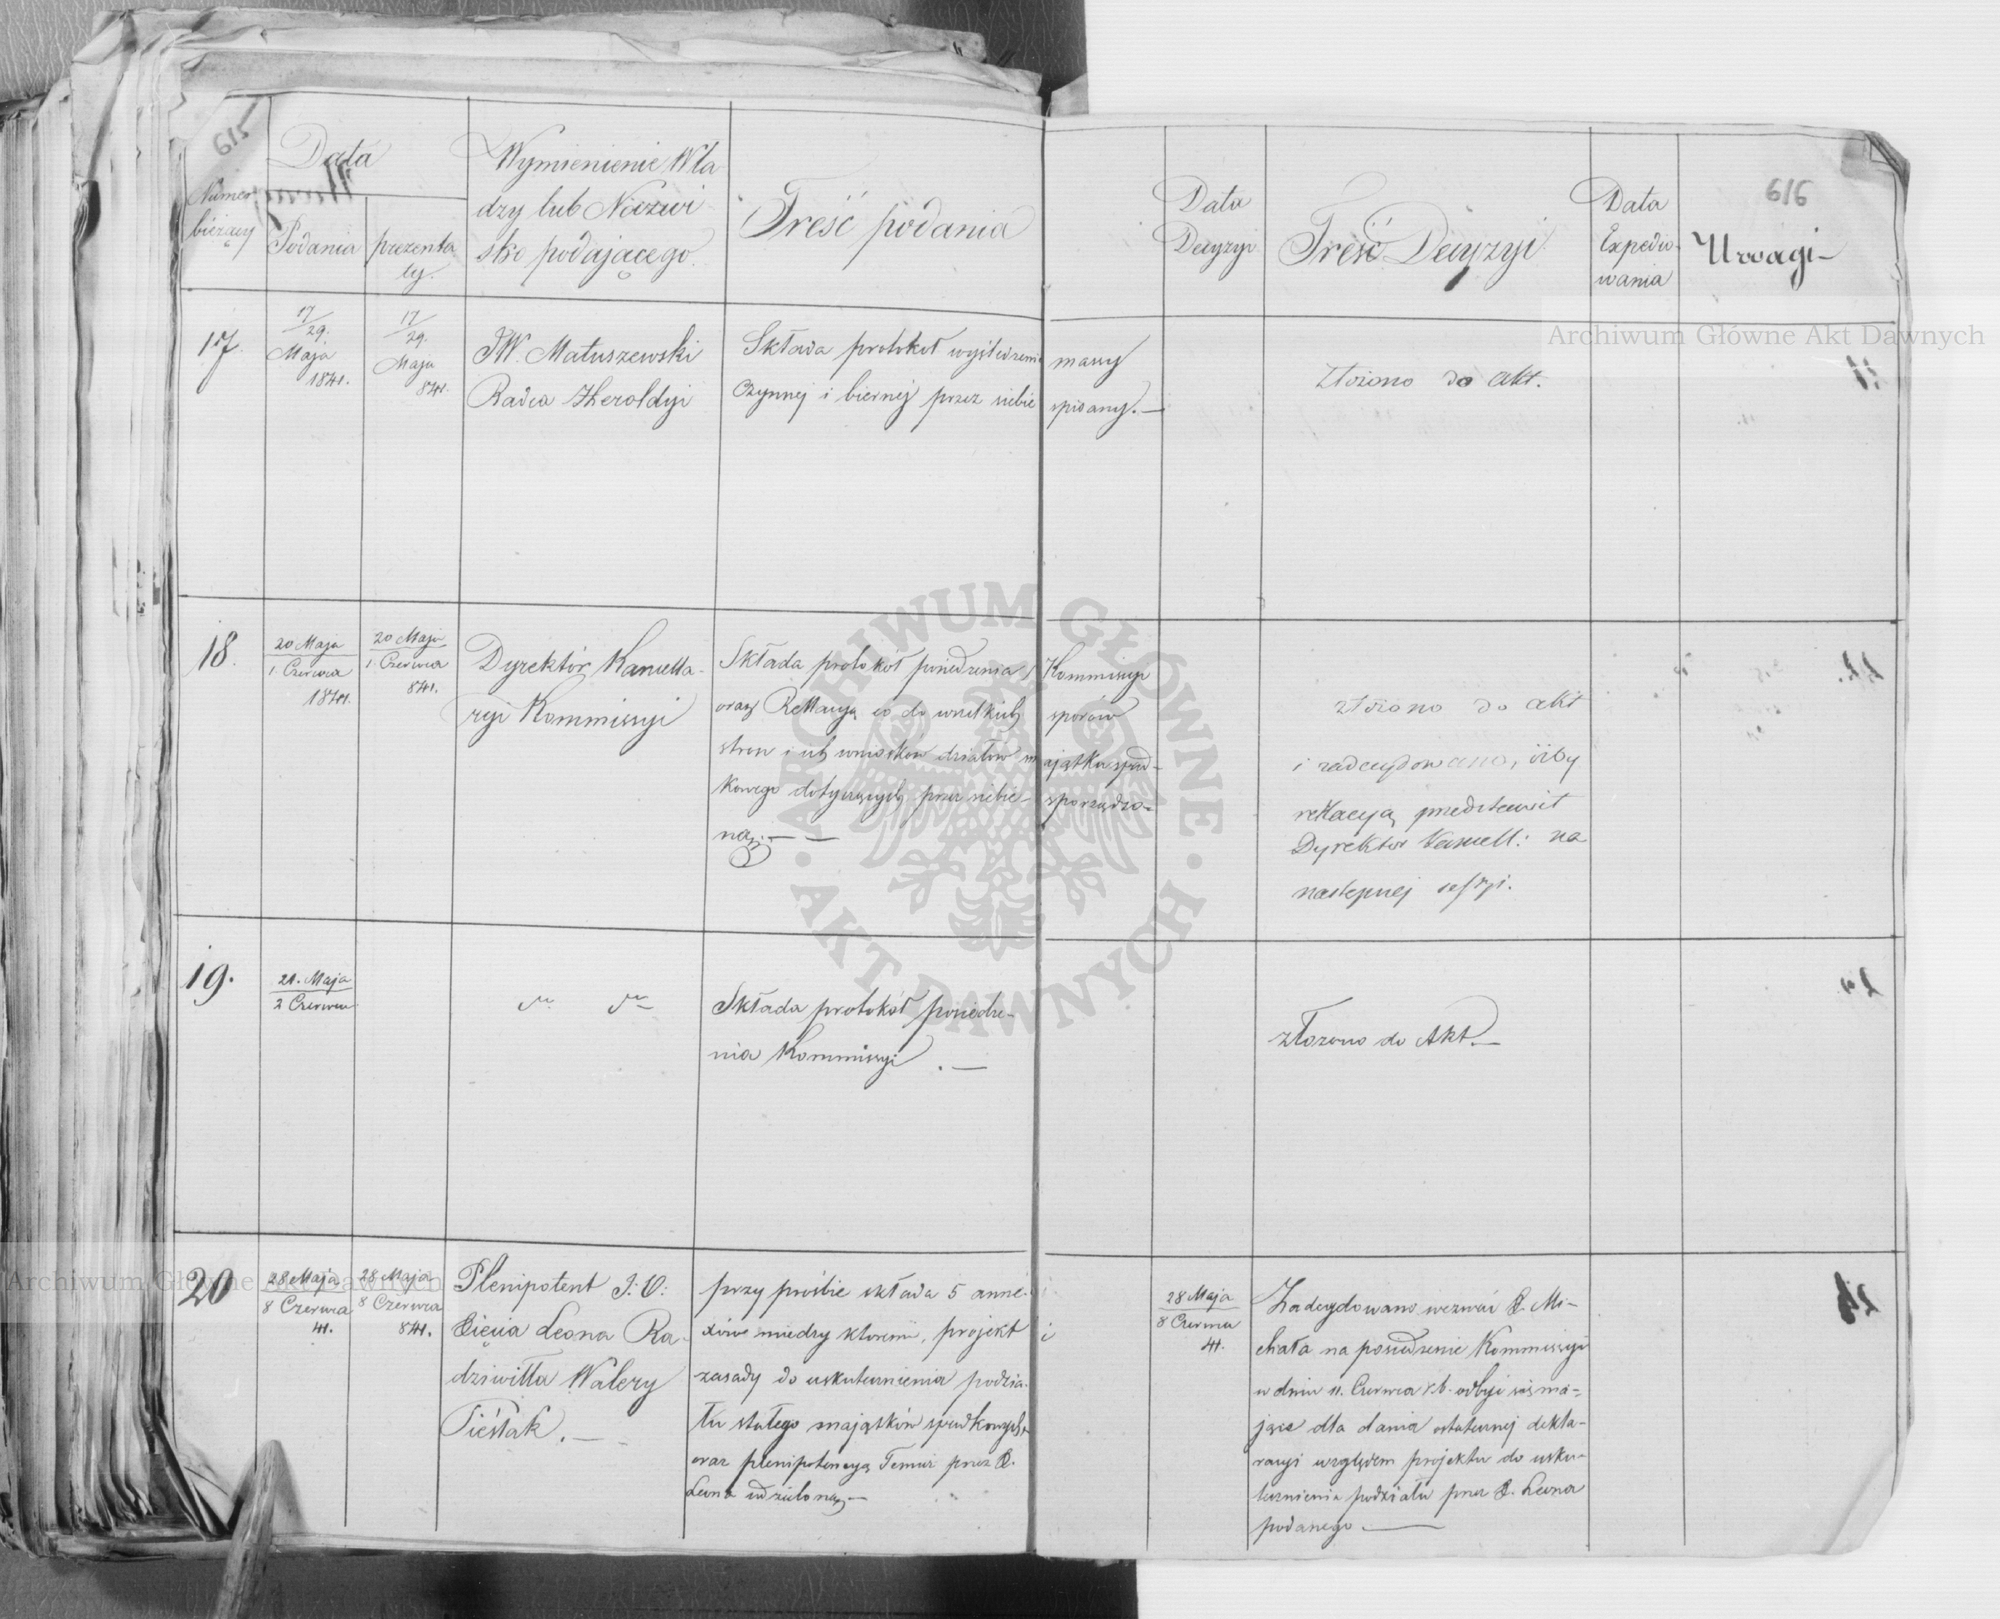 616
Numer
bieżący
Data
Podania
prezenta
ty.
Wymienienie Wła
dzy lub Nazwi
sko podającego.
Treść podania
Data
Decyzyi
Treść Decyzyi
Data
Expedio-
wania
Uwagi
17.
17/29.
Maja
1841.
17/29.
Maja
841.
JW. Matuszewski
Radca Heroldyi
Składa protokół wyśledzenia massy
czynnej i biernej przez siebie spisany.—
złożono do akt.
18.
20 Maja
1 Czerwca
1841.
20 Maja
1 Czerwca
841.
Dyrektór Kancella-
ryi Kommissyi
Składa protokół posiedzenia Kommissyi
oraz Rellacyą co do wszelkich sporów
stron i ich wniosków działów majątku spad-
kowego dotyczących przez siebie sporządzo-
ną.——
złożono do akt
i zadecydowano, iżby
rellacyą przedstawił
Dyrektor Kancell: na
następnej sessyi.
19.
21. Maja
2 Czerwca
Składa protokół posiedze-
nia Kommissyi.—
złożono do Akt.—
20
28 Maja
8 Czerwca
41.
28 Maja
8 Czerwca
841.
Plenipotent J. O:
Xięcia Leona Ra-
dziwiłła Walery
Cieślak.—
przy prośbie składa 5 anne-
xów między któremi, projekt i
zasady do uskutecznienia podzia-
łu stałego majątków spadkowych
oraz plenipotencyą Temuż przez X.
Leona udzieloną—
28 Maja
8 Czerwca
41.
Zadecydowano wezwać X. Mi-
chała na posiedzenie Kommissyi
w dniu 11. Czerwca r. b. odbyć się ma-
jące dla dania ostatecznej dekla-
racyi względem projektu do usku-
tecznienia podziału przez X. Leona
podanego.—
Archiwum Główne Akt Dawnych
Archiwum Główne Akt Dawnych
ARCHIWUM GŁÓWNE · AKT DAWNYCH ·